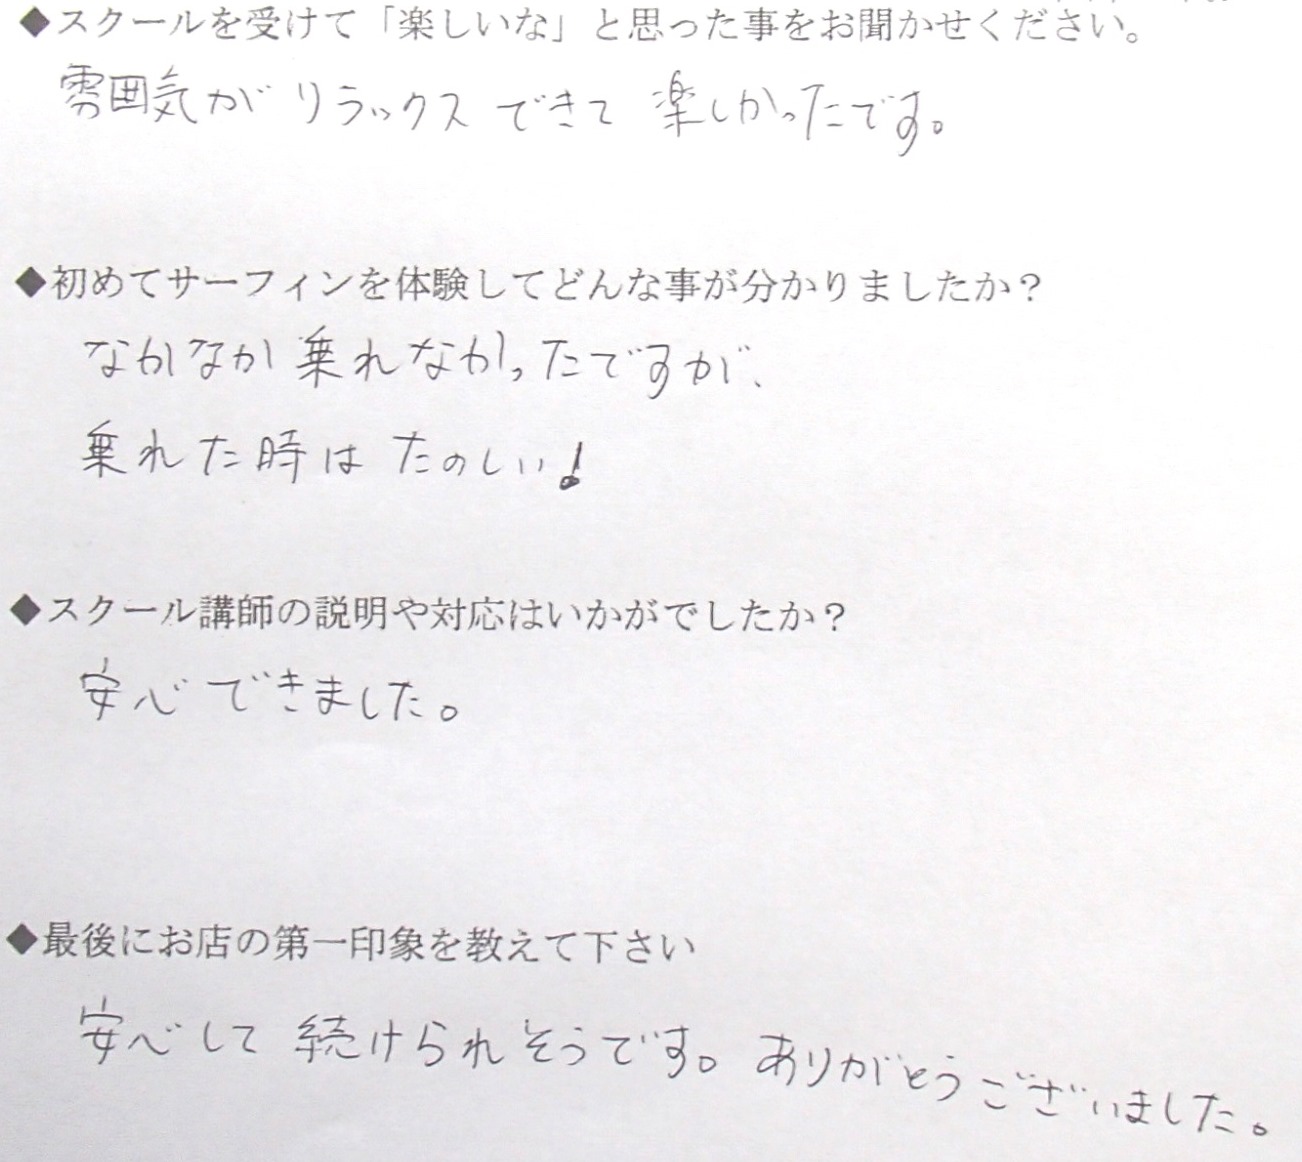 ◆スクールを受けて「楽しいな」と思った事をお聞かせください。
雰囲気が リラックス できて 楽しかったです。
◆初めてサーフィンを体験してどんな事が分かりましたか？
なかなか 乗れなかったですが、
乗れた時は たのしい！
◆スクール講師の説明や対応はいかがでしたか？
安心 できました。
◆最後にお店の第一印象を教えて下さい
安心して 続けられそうです。ありがとうございました。